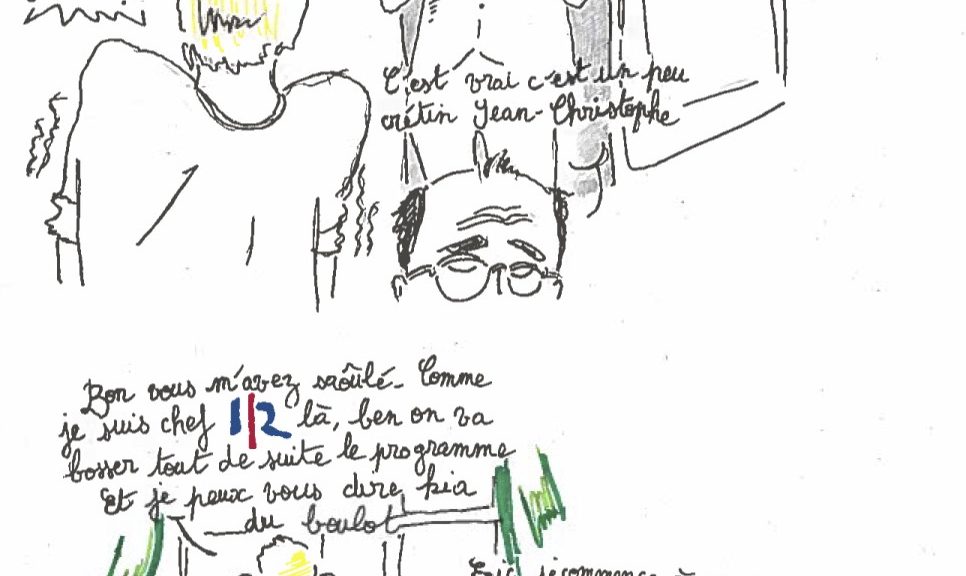 C'est vrai c'est un peu
crétin Jean-Christophe
Bon vous m'avez saoûlé. Comme
je suis chef 1|2 là, ben on va
bosser tout de suite le programme
Et je peux vous dire kia
du boulot